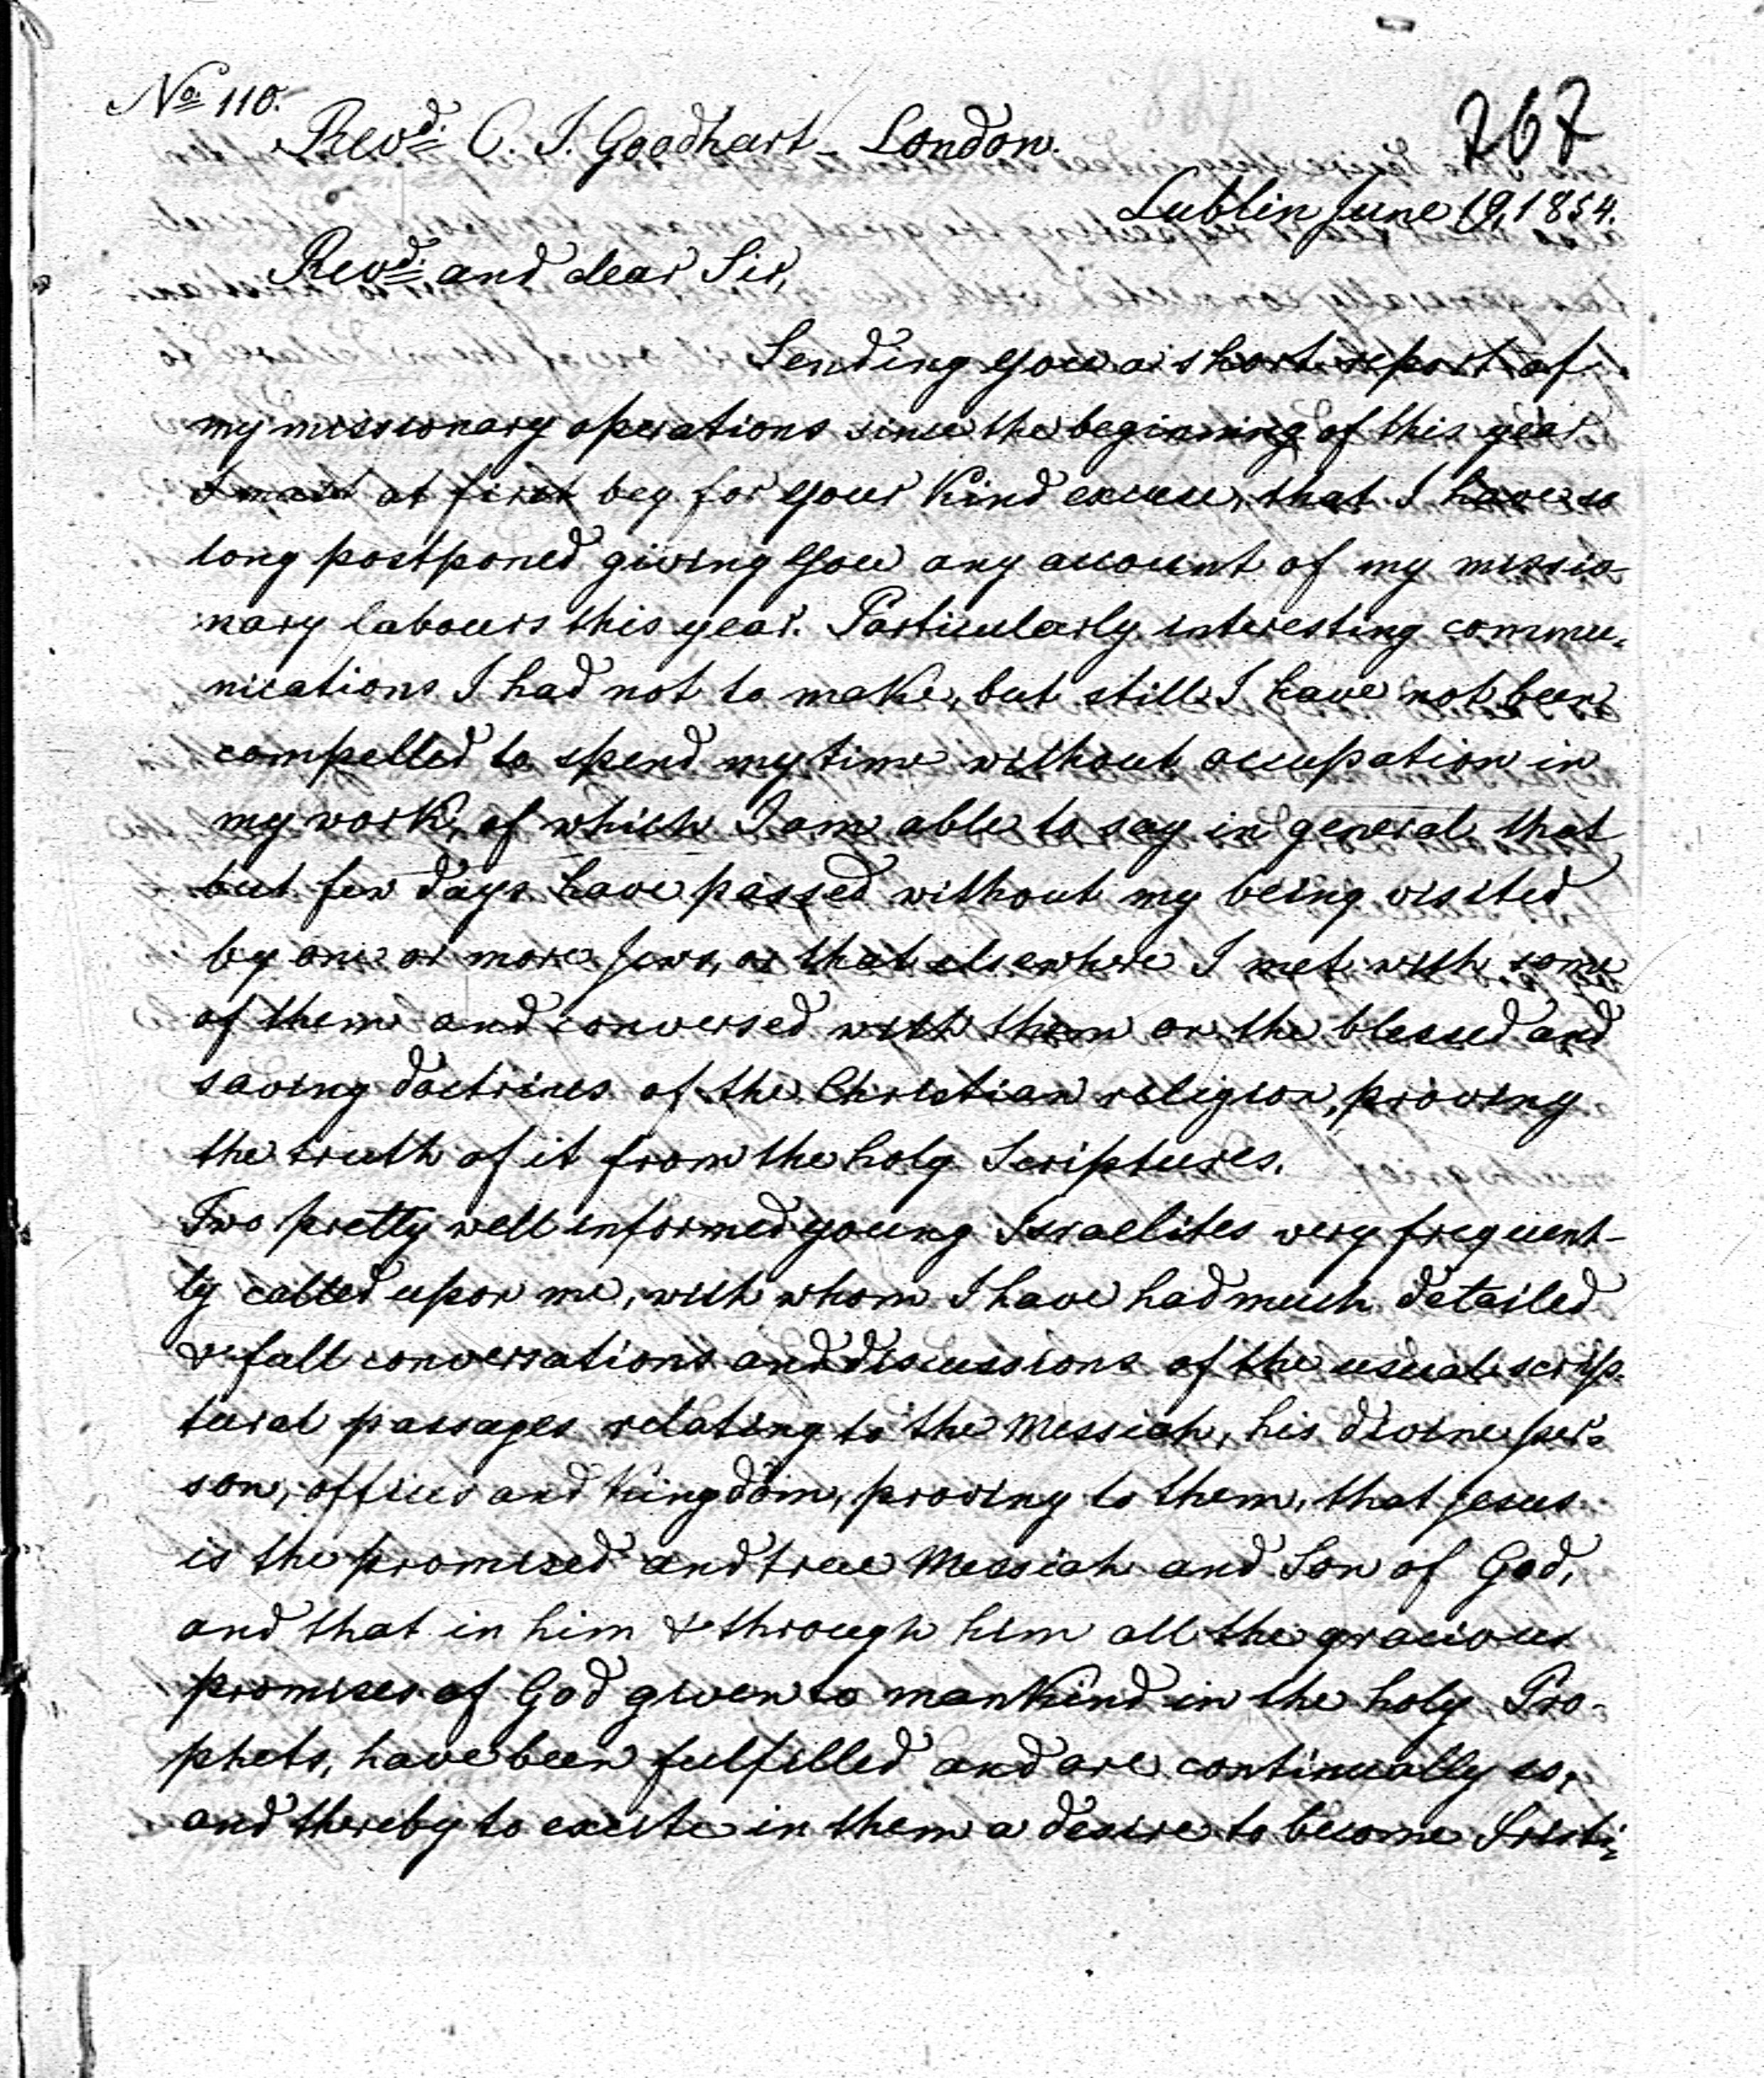 No. 110.
267
Revd. C. J. Goodhart - London.
Lublin June 19, 1854.
Revd. and dear Sir,
Sending you a short report of
my missionary operations since the beginning of this year
I must at first beg for your kind excuse, that I have so
long postponed giving you any account of my missio-
nary labours this year. Particularly interesting commu-
nications I had not to make, but still I have not been
compelled to spend my time without occupation in
my work, of which I am able to say in general, that
but few days have passed without my being visited
by one or more Jews, or that elsewhere I met with some
of them and conversed with them on the blessed and
saving doctrines of the Christian religion, proving
the truth of it from the holy Scriptures.
Two pretty well informed young Israelites very frequent-
ly called upon me, with whom I have had much detailed
& full conversations and discussions of the usual scrip-
tural passages relating to the Messiah, his divine per-
son, offices and Kingdom, proving to them, that Jesus
is the promised and true Messiah and Son of God,
and that in him & through him all the gracious
promises of God given to mankind in the holy Pro-
phets, have been fulfilled and are continually so,
and thereby to excite in them a desire to become